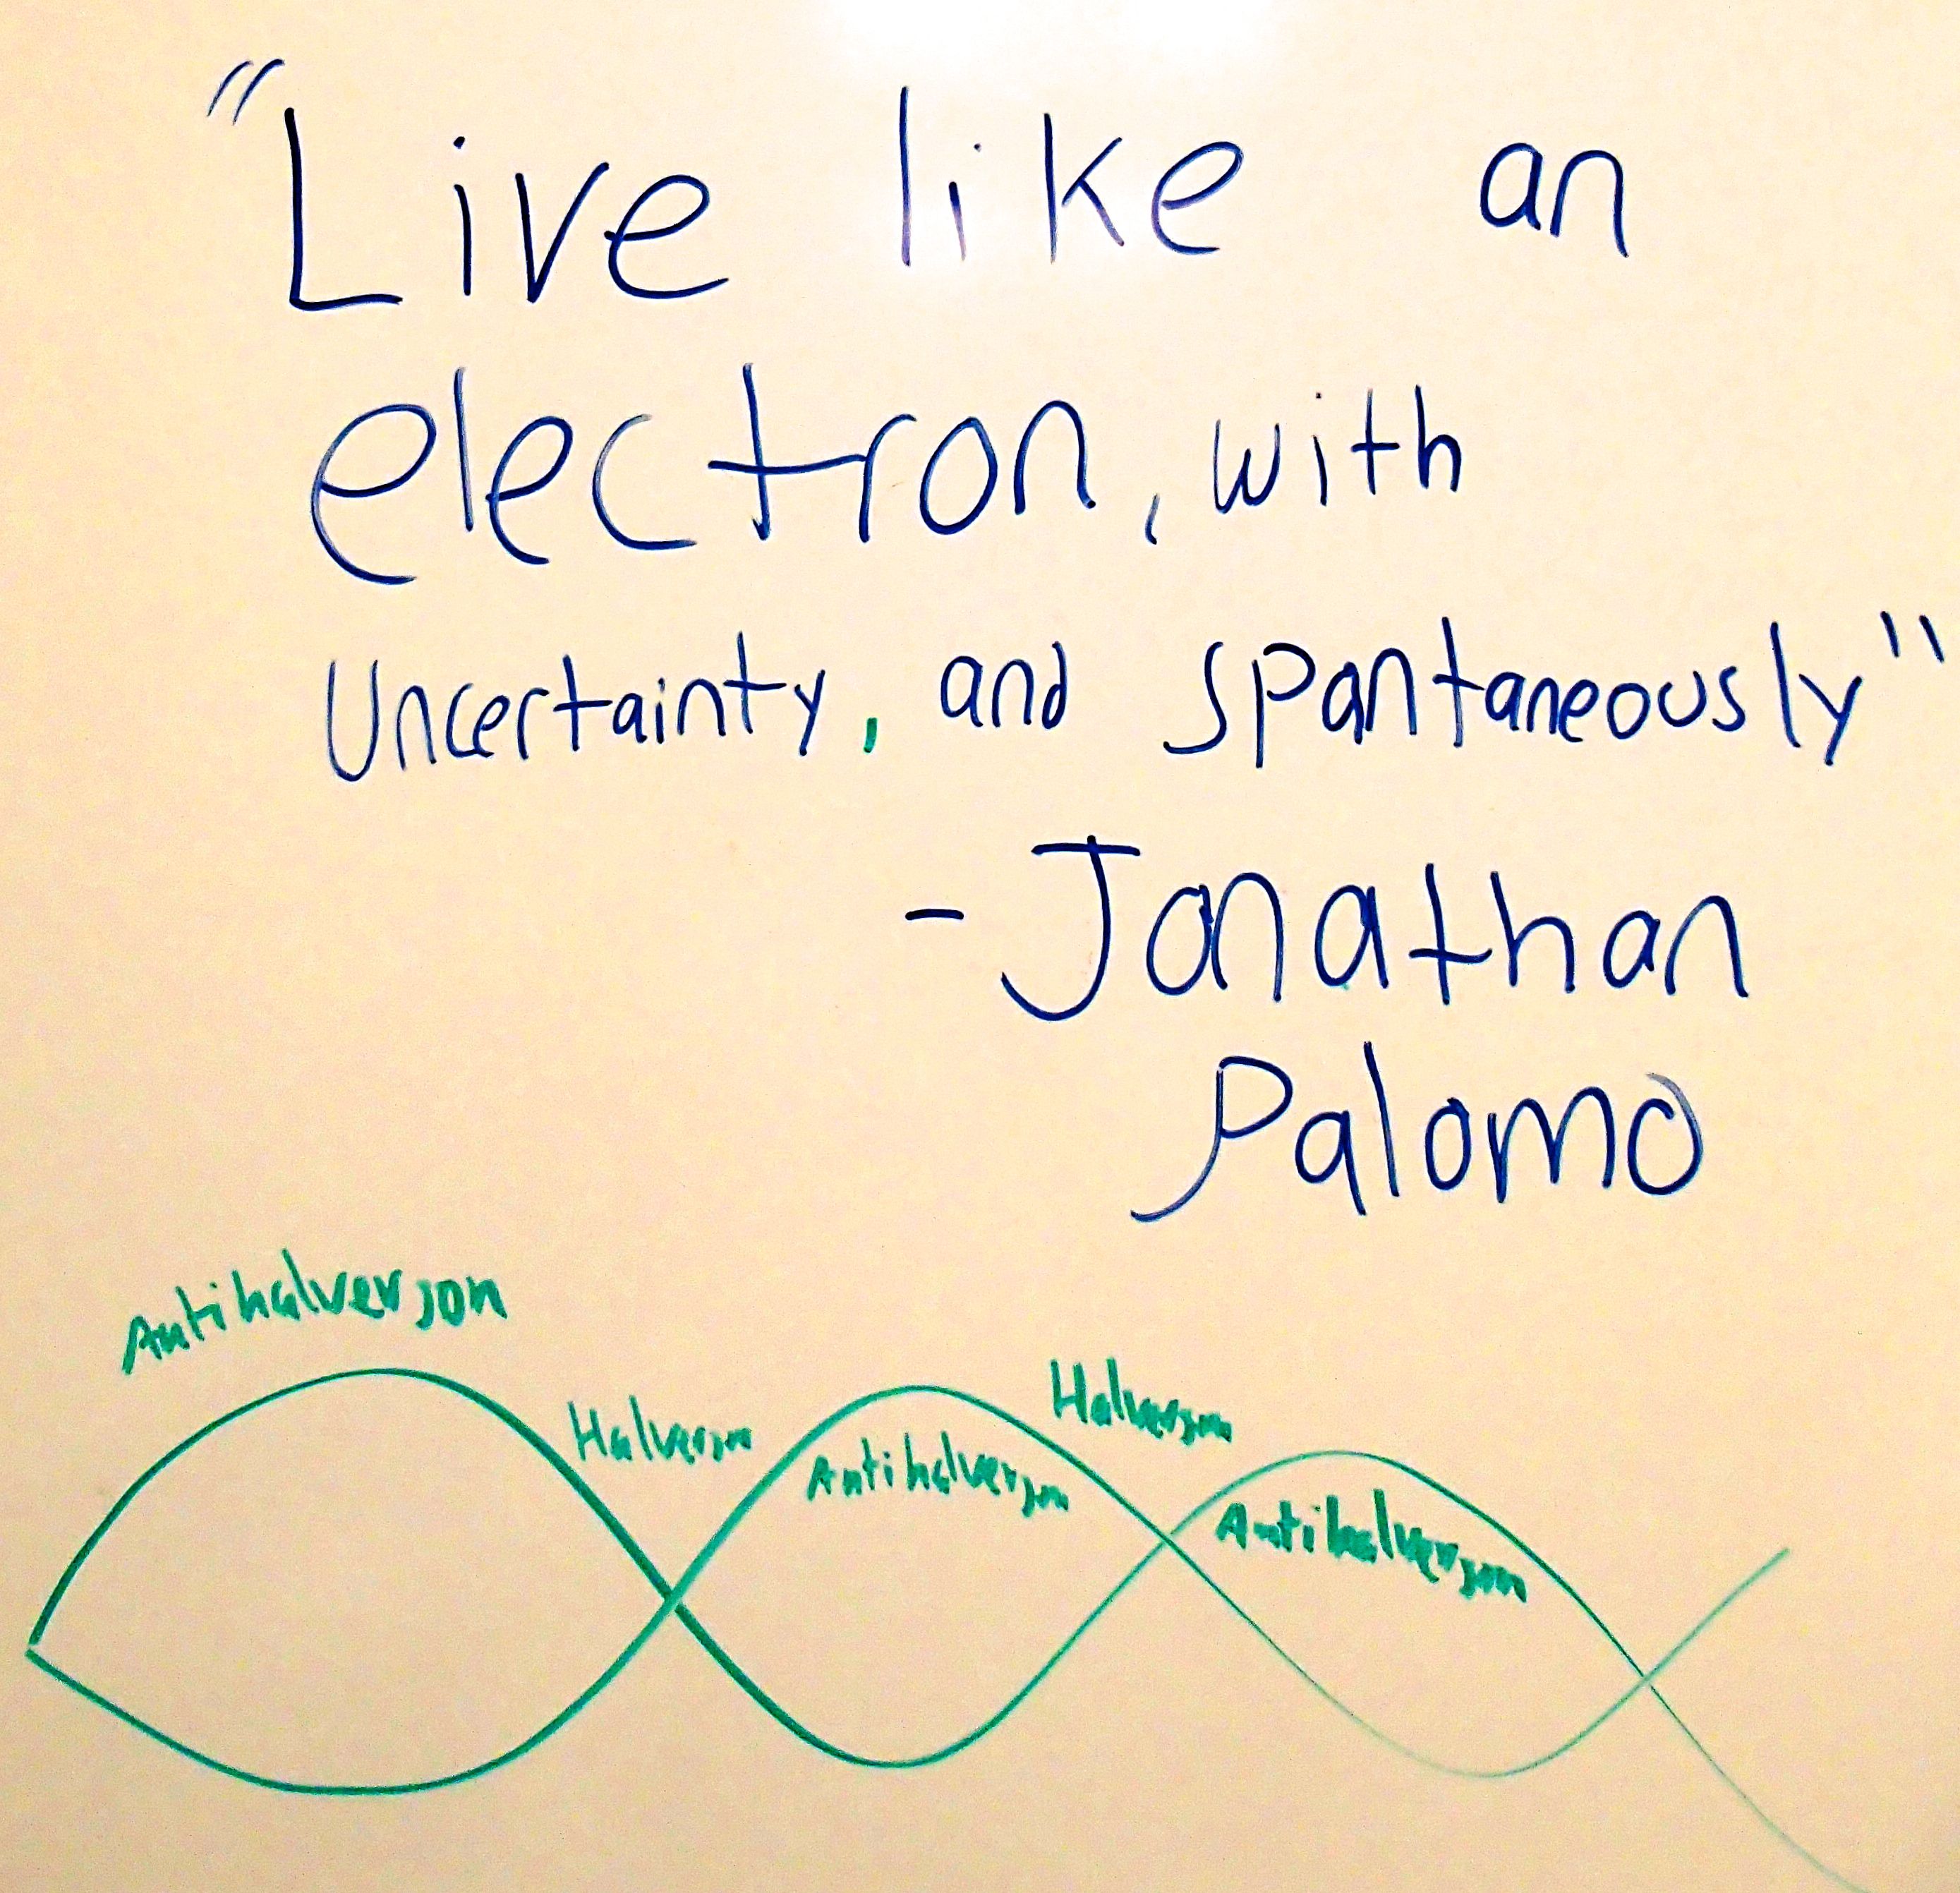 "Live like an
electron, with
Uncertainty, and spantaneously"
- Jonathan
Palomo
Antihalverson
Halverson
Halverson
Antihalverson
Antihalverson